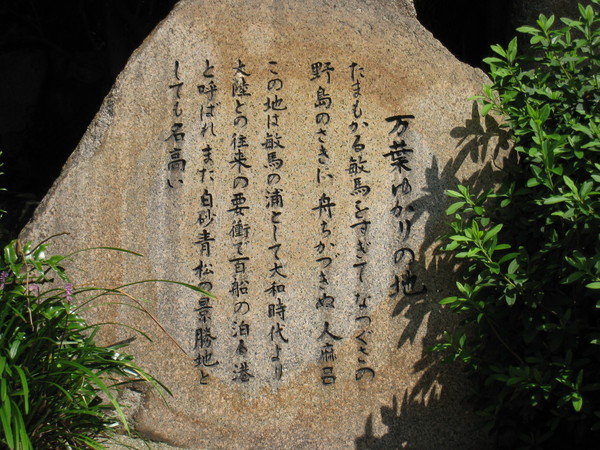 万葉ゆかりの地
たまもかる敏馬をすぎてなつぐさの
野島のさきに舟ちかづきぬ 人麻呂
この地は敏馬の浦として大和時代より
大陸との往来の要衝で百船の泊る港
と呼ばれまた白砂青松の景勝地と
しても名高い